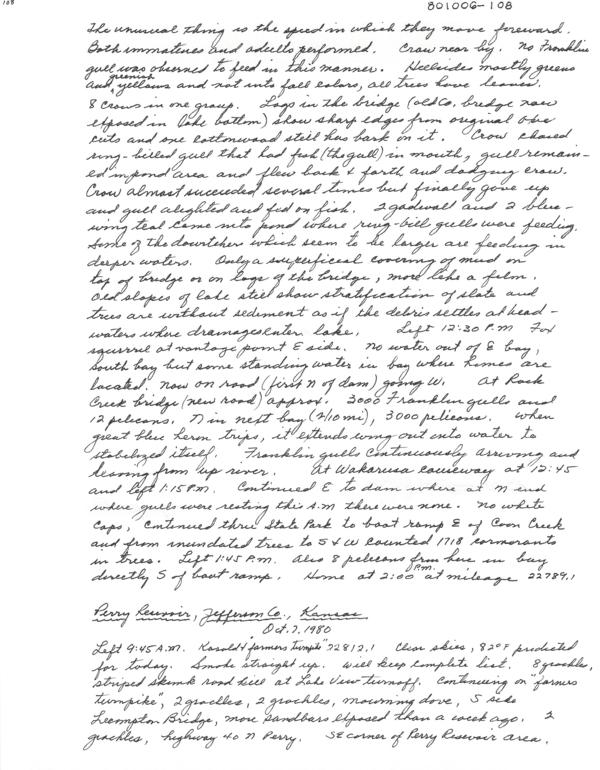 108
801006-108
The unusual thing is the speed in which they move foreward.
Both immatures and adults performed. Crow near by. No Franklin
gull was observed to feed in this manner. Hillsides mostly greens
greenish
and yellows and not into fall colors, all trees have leaves.
8 crows in one group. Logs in the bridge (old Co. bridge now
exposed in lake bottom) show sharp edges from original axe
cuts and one cottonwood still has bark on it. Crow chased
ring-billed gull that had fish (the gull) in mouth, gull remain-
ed in pond area and flew back & forth and dodging crow.
Crow almost succeeded several times but finally gave up
and gull alighted and fed on fish. 2 gadwall and 2 blue-
wing teal came into pond where ring-bill gulls were feeding.
Some of the dowitchers which seem to be larger are feeding in
deeper waters. Only a superficial covering of mud on
top of bridge or on logs of the bridge, more like a film.
Old slopes of lake still show stratification of slate and
trees are without sediment as if the debris settles at head-
waters where drainages enter lake. Left 12:30 P.M Fox
squirrel at vantage point E side. No water out of E bay,
South bay but some standing water in bay where homes are
located. Now on road (first N of dam) going W. At Rock
Creek bridge (new road) approx. 3000 Franklin gulls and
12 pelicans. N in next bay (2/10 mi), 3000 pelicans. When
great blue heron trips, it extends wing out into water to
stabilized itself. Franklin gulls continuously arriving and
leaving from up river. At Wakarusa causeway at 12:45
and left 1:15 P.M. Continued E to dam where at N end
where gulls were resting this A.M there were none. No white
caps, continued thru State Park to boat ramp E of Coon Creek
and from inundated trees to S & W counted 1718 cormorants
in trees. Left 1:45 P.M. Also 8 pelicans from here in bay
directly S of boat ramp. Home at 2:00 P.M. at mileage 22789.1
Perry Resevoir, Jefferson Co., Kansas
Oct. 7, 1980
Left 9:45 A.M. Kasold & "farmers turnpike" 22812.1 Clear skies, 82°F predicted
for today. Smoke straight up. Will keep complete list. 8 grackles,
striped skunk road kill at Lake View turnoff. Continuing on "farmers
turnpike", 2 grackles, 2 grackles, mourning dove, S side
Lecompton Bridge, more sandbars exposed than a week ago. 2
grackles, highway 40 N Perry. SE corner of Perry Resevoir area,